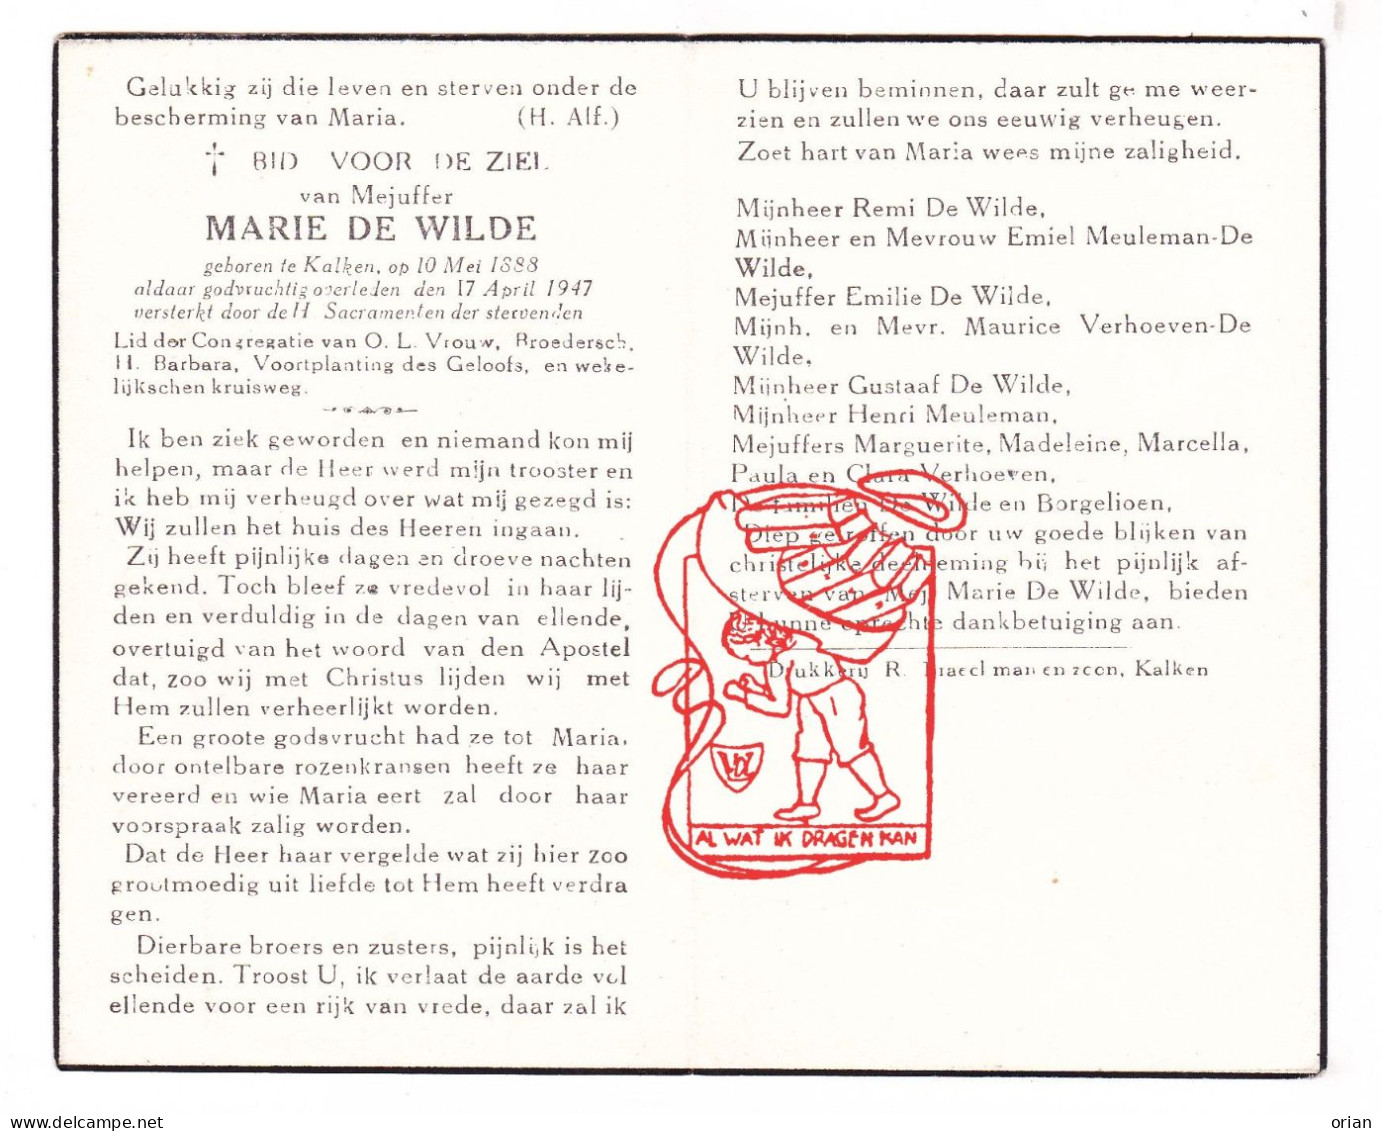 Gelukkig zij die leven en sterven onder de
bescherming van Maria. (H. Alf.)
† BID VOOR DE ZIEL
van Mejuffer
MARIE DE WILDE
geboren te Kalken, op 10 Mei 1888
aldaar godvruchtig overleden den 17 April 1947
versterkt door de H Sacramenten der stervenden
Lid der Congregatie van O. L. Vrouw, Broedersch.
H. Barbara, Voortplanting des Geloofs, en weke-
lijkschen kruisweg.
Ik ben ziek geworden en niemand kon mij
helpen, maar de Heer werd mijn trooster en
ik heb mij verheugd over wat mij gezegd is:
Wij zullen het huis des Heeren ingaan.
Zij heeft pijnlijke dagen en droeve nachten
gekend. Toch bleef ze vredevol in haar lij-
den en verduldig in de dagen van ellende,
overtuigd van het woord van den Apostel
dat, zoo wij met Christus lijden wij met
Hem zullen verheerlijkt worden.
Een groote godsvrucht had ze tot Maria,
door ontelbare rozenkransen heeft ze haar
vereerd en wie Maria eert zal door haar
voorspraak zalig worden.
Dat de Heer haar vergelde wat zij hier zoo
grootmoedig uit liefde tot Hem heeft verdra
gen.
Dierbare broers en zusters, pijnlijk is het
scheiden. Troost U, ik verlaat de aarde vol
ellende voor een rijk van vrede, daar zal ik
U blijven beminnen, daar zult ge me weer-
zien en zullen we ons eeuwig verheugen.
Zoet hart van Maria wees mijne zaligheid.
Mijnheer Remi De Wilde,
Mijnheer en Mevrouw Emiel Meuleman-De
Wilde,
Mejuffer Emilie De Wilde,
Mijnh. en Mevr. Maurice Verhoeven-De
Wilde,
Mijnheer Gustaaf De Wilde,
Mijnheer Henri Meuleman,
Mejuffers Marguerite, Madeleine, Marcella,
Paula en Clara Verhoeven,
De familien De Wilde en Borgelioen,
Diep getroffen door uw goede blijken van
christelijke deelneming bij het pijnlijk af-
sterven van Mej. Marie De Wilde, bieden
U hunne oprechte dankbetuiging aan.
Drukkerij R. man en zoon, Kalken
VDV
AL WAT IK DRAGEN KAN
www.delcampe.net
orian